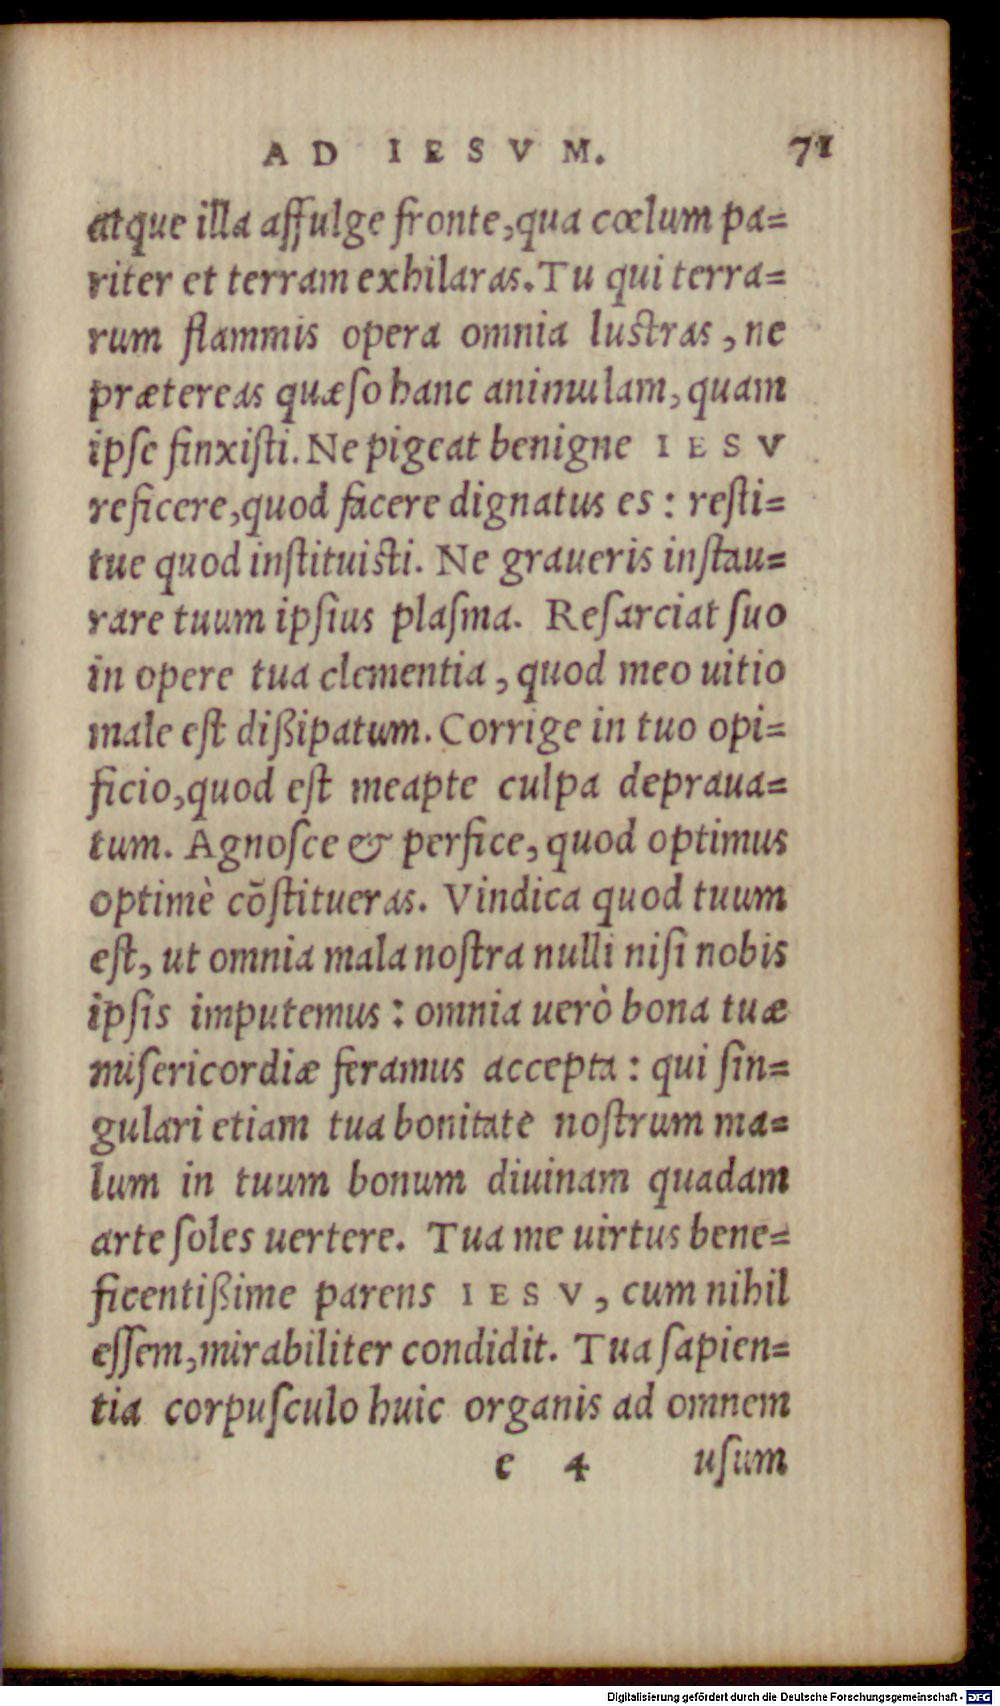 AD IESVM. 71
atque illa affulge fronte, qua cœlum pa=
riter et terram exhilaras. Tu qui terra=
rum flammis opera omnia lustras, ne
prætereas quæso hanc animulam, quam
ipse finxisti. Ne pigeat benigne IESV
reficere, quod facere dignatus es: resti=
tue quod instituisti. Ne graueris instau=
rare tuum ipsius plasma. Resarciat suo
in opere tua clementia, quod meo uitio
male est dißipatum. Corrige in tuo opi=
ficio, quod est meapte culpa deprаua=
tum. Agnosce & perfice, quod optimus
optimè cõstitueras. Vindica quod tuum
est, ut omnia mala nostra nulli nisi nobis
ipsis imputemus: omnia uerò bona tuæ
misericordiæ feramus accepta: qui sin=
gulari etiam tua bonitate nostrum ma=
lum in tuum bonum diuinam quadam
arte soles uertere. Tua me uirtus bene=
ficentißime parens IESV, cum nihil
essem, mirabiliter condidit. Tua sapien=
tia corpusculo huic organis ad omnem
e 4 usum
Digitalisierung gefördert durch die Deutsche Forschungsgemeinschaft - DFG